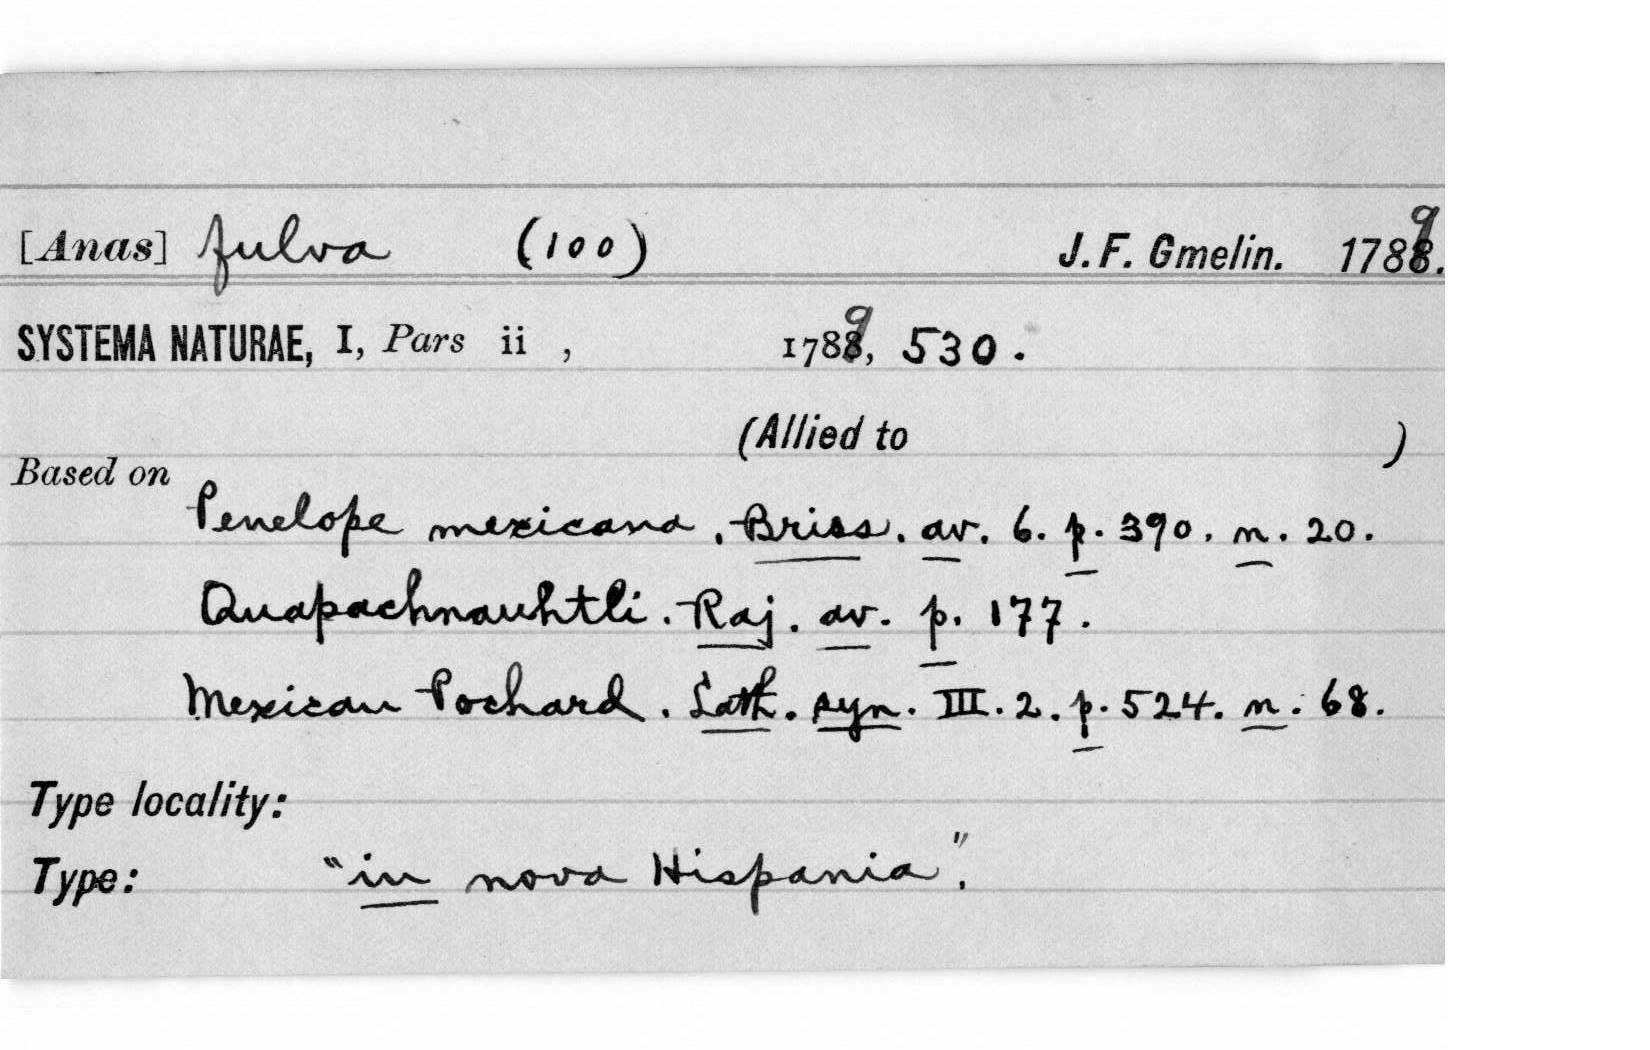 [Anas] fulva (100) J. F. Gmelin. 1789.
SYSTEMA NATURAE, I, Pars ii , 1789, 530.
(Allied to )
Based on
Penelope mexicana. Briss. av. 6. p. 390. n. 20.
Quapachnauhtli. Raj. av. p. 177.
Mexican Pochard. Lath. syn. III. 2. p. 524. n. 68.
Type locality:
Type: "in nova Hispania".